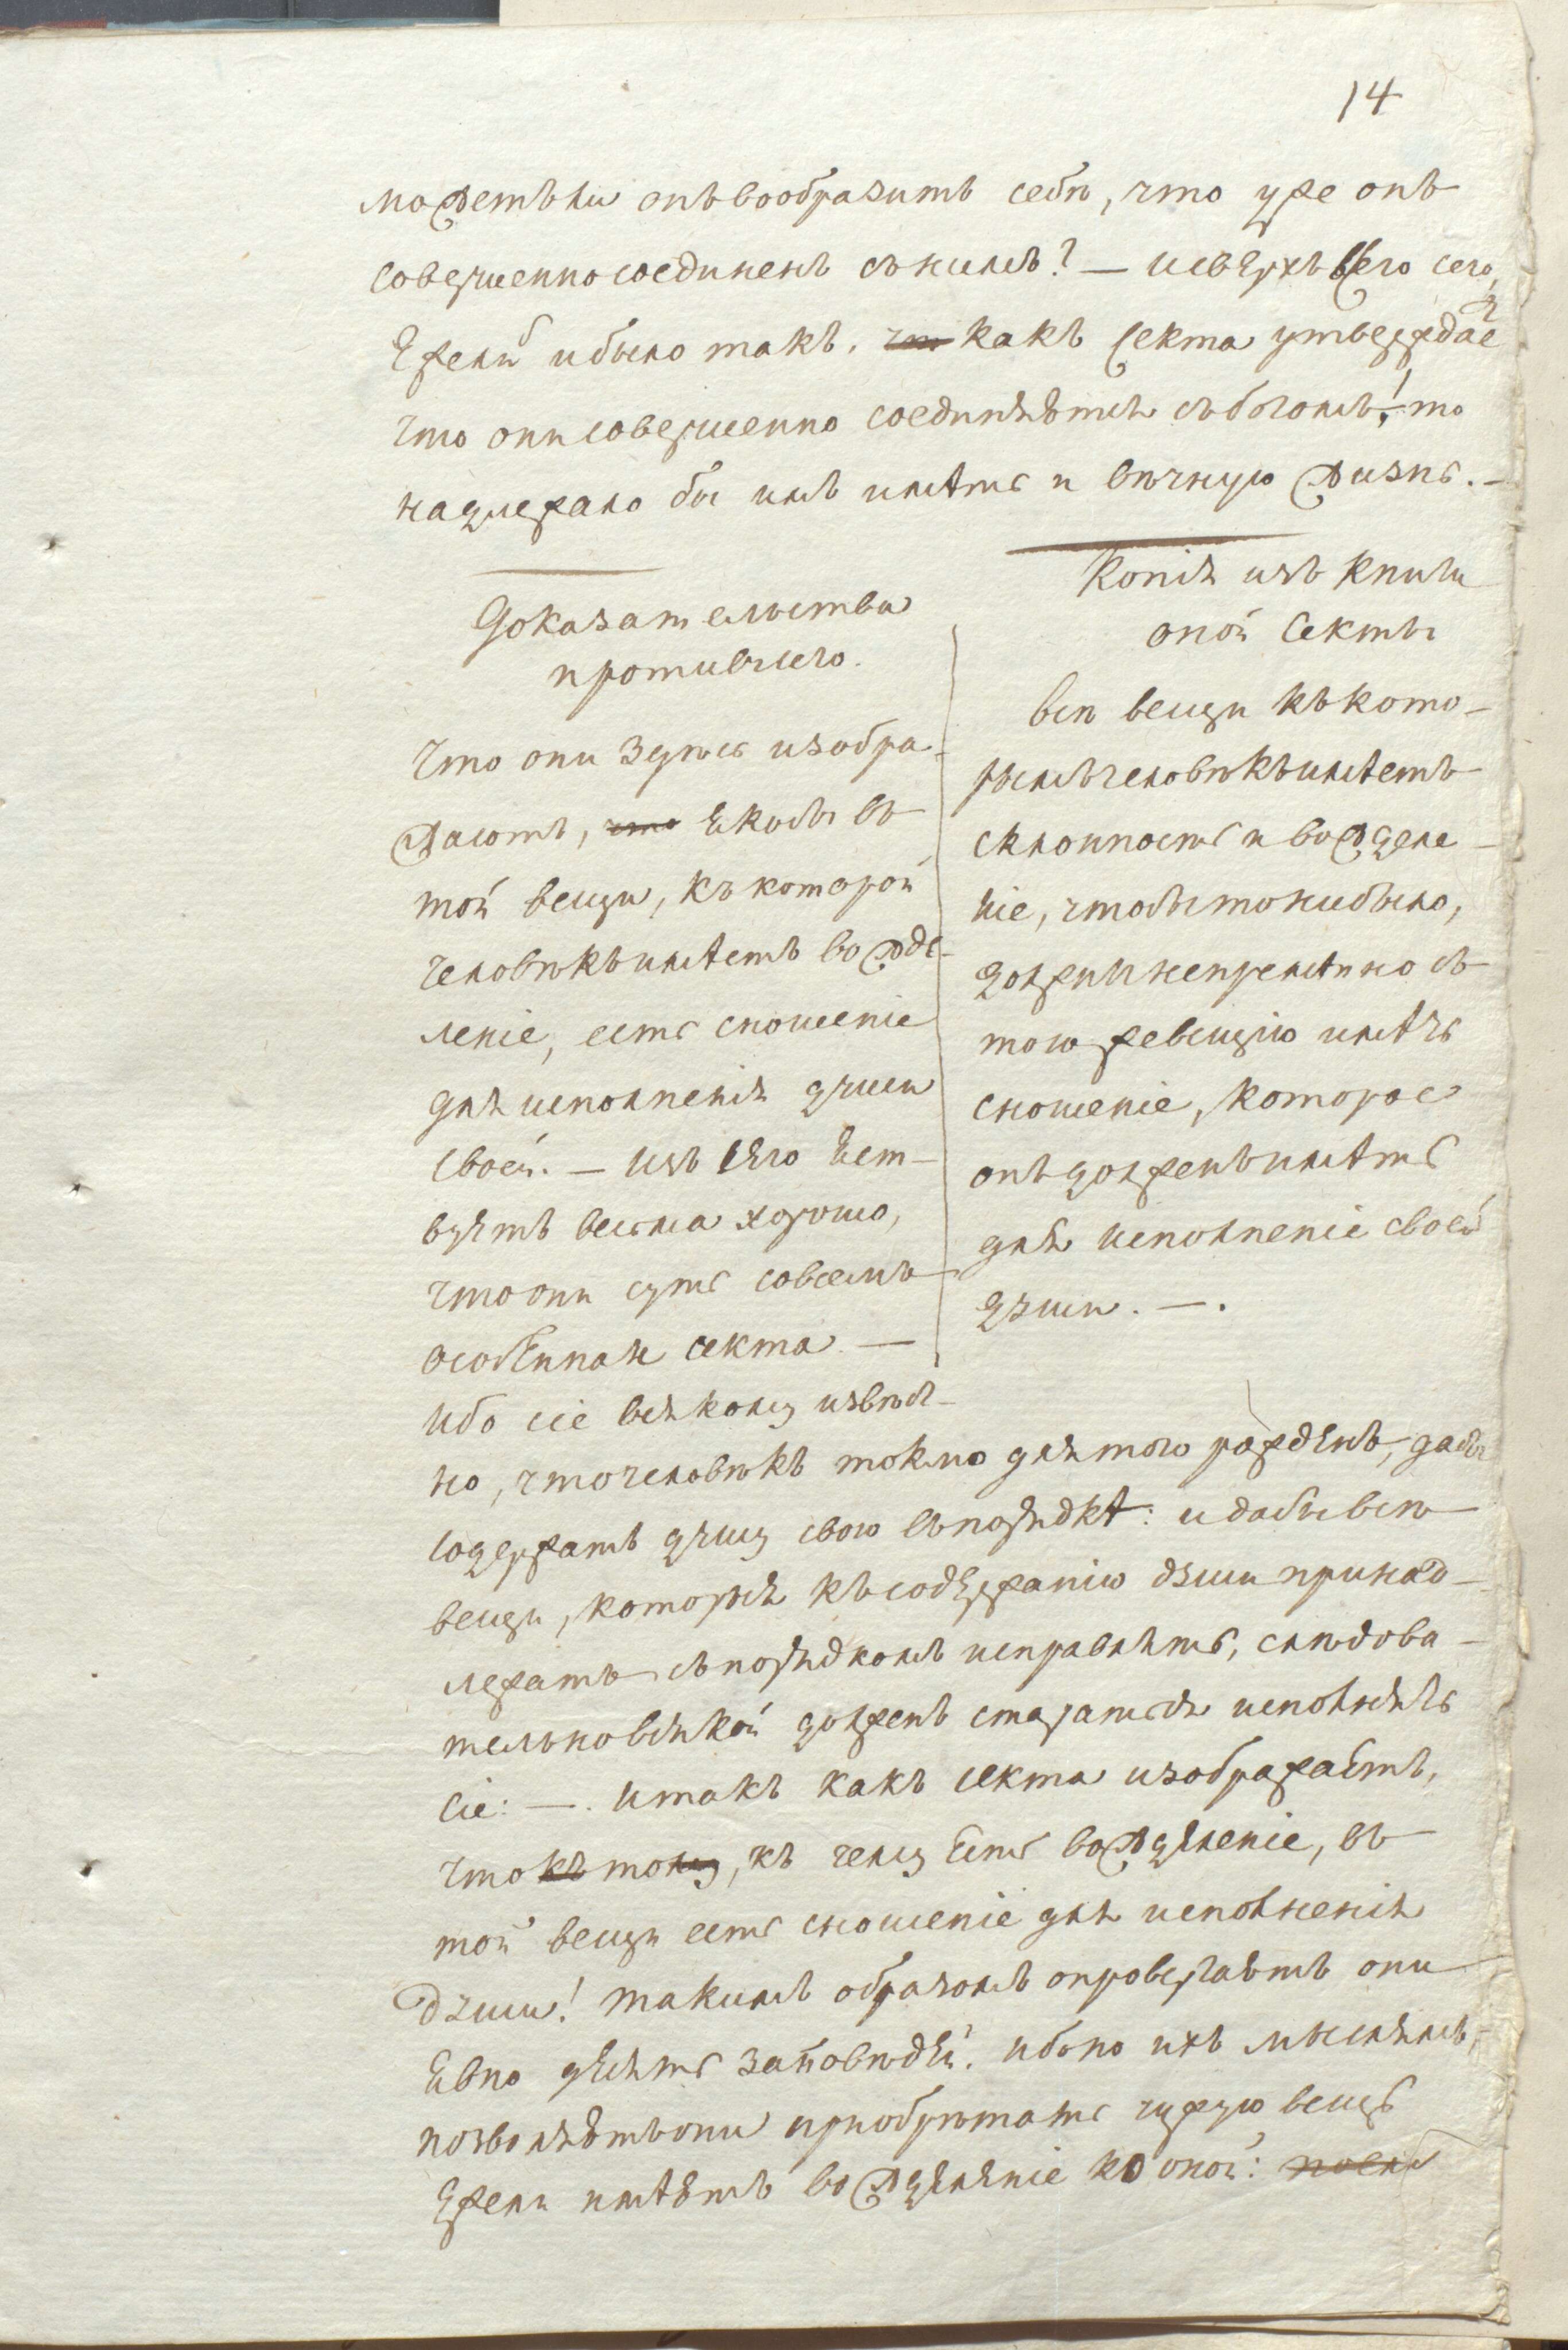 14
можетъ ли онъ вообразить себѣ, что уже онъ
совершенно соединенъ съ нимъ? — И сверхъ всего сего,
Ежелиб и было такъ, что какъ секта утверждает
что они совершенно соединяются съ богомъ! то
надлежало бы имъ имѣть и вѣчную жизнь. —
Доказательства
противъ сего.
Что они здѣсь изобра-
жаютъ, что якобы въ
той вещи, къ которой
человѣкъ имѣетъ вожде-
ленїе, есть сношенїе
для исполненїя души
своей. — Изъ сего явст-
вуетъ весьма хорошо,
что они суть совсемъ
особенная секта —
Ибо сїе всякому извѣст-
Копїя изъ книги
оной секты
Всѣ вещи къ кото-
рымъ человѣкъ имѣетъ
склонность и вожделе-
нїе, чтобы то ни было,
должны непремѣнно съ
тою же вещїю имѣть
сношенїе, которое
онъ долженъ имѣть
для исполненїе своей
души. —.
но, что человѣкъ токмо для того рожденъ, дабы
содержать душу свою въ порядкѣ: и дабы всѣ
вещи, которыя къ содержанїю души принад-
лежатъ съ порядкомъ исправлять, слѣдова-
тельно всякой долженъ стараться исполнять
сїе: —. Итакъ какъ секта изображаетъ,
что къ тому, къ чему есть вожделенїе, въ
той вещи есть сношенїе для исполненїя
души! такимъ образомъ опровергаютъ они
явно десять заповѣдей. Ибо по ихъ мыслямъ,
позволяютъ они приобрѣтать чужую вещь
Ежели имѣютъ вожделенїе ко оной: